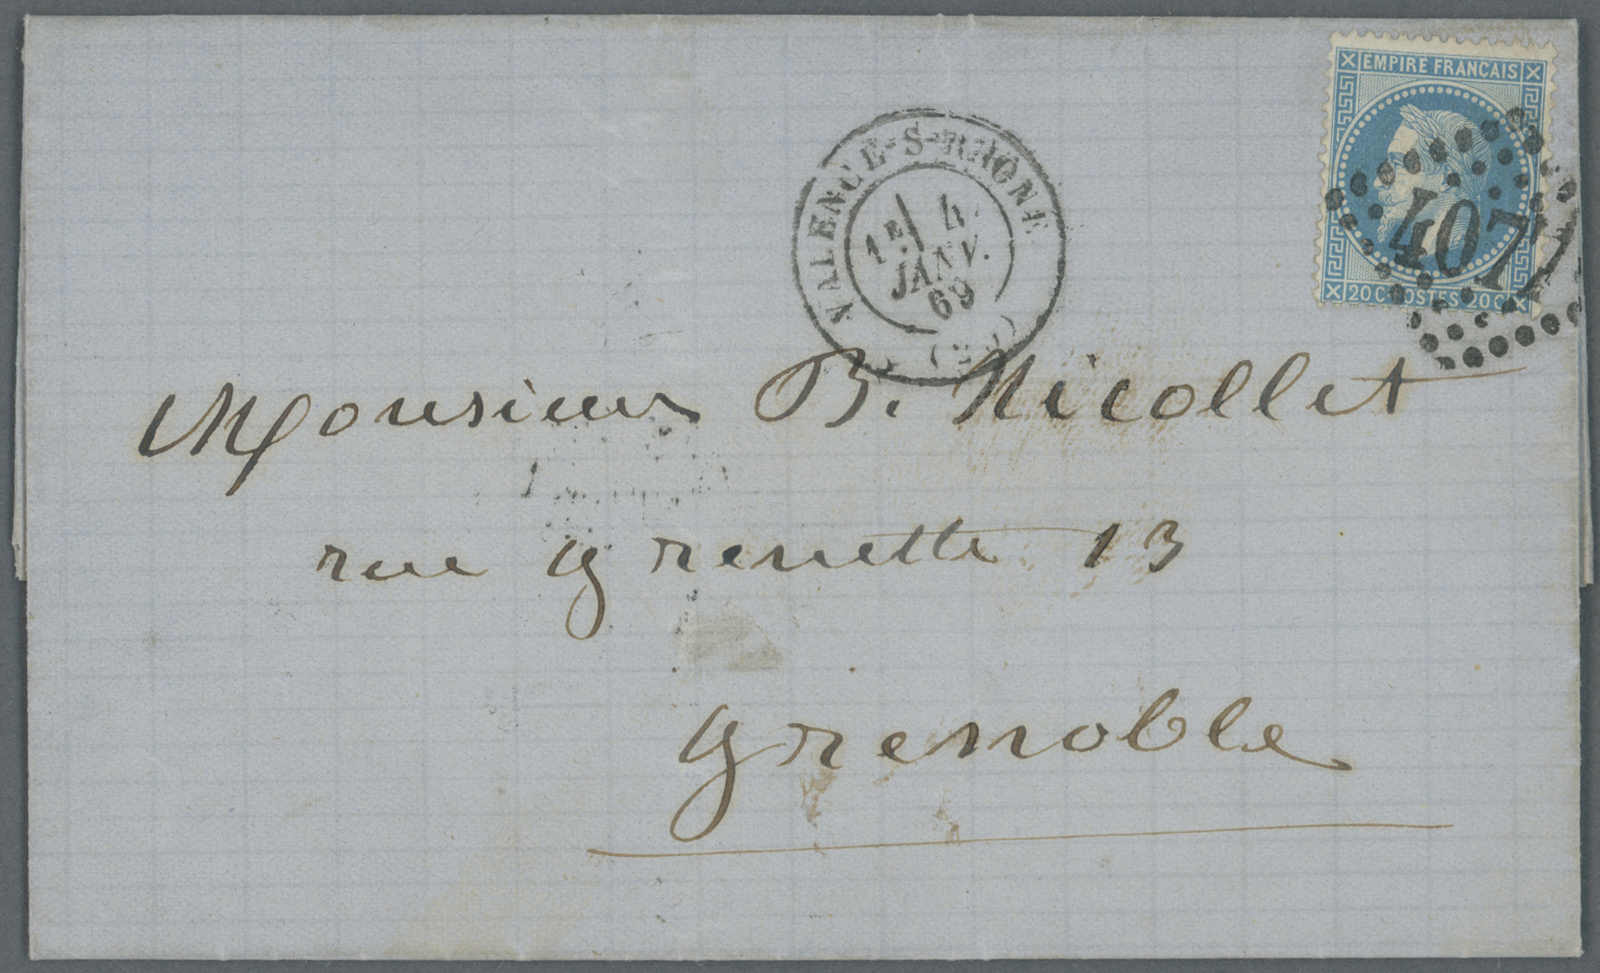 EMPIRE FRANCAIS
VALENCE-S-RHONE
1E 4
JANV.
69
(25)
407
20 C POSTES 20 C
Monsieur B. Nicollet
rue Grenette 13
Grenoble